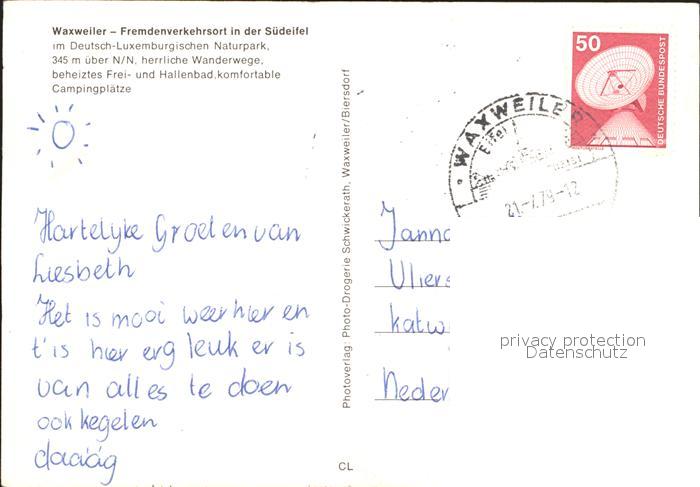 Waxweiler – Fremdenverkehrsort in der Südeifel
im Deutsch-Luxemburgischen Naturpark,
345 m über N/N, herrliche Wanderwege,
beheiztes Frei- und Hallenbad, komfortable
Campingplätze
50
DEUTSCHE BUNDESPOST
WAXWEILER
Eifel
21.-7.79-12
Hartelyke Groeten van
Liesbeth
Het is mooi weer hier en
t'is hier erg leuk er is
van alles te doen
ook kegelen
daaág
Photoverlag: Photo-Drogerie Schwickerath, Waxweiler/Biersdorf
CL
Janno
Vliers
katw
Neder
privacy protection
Datenschutz